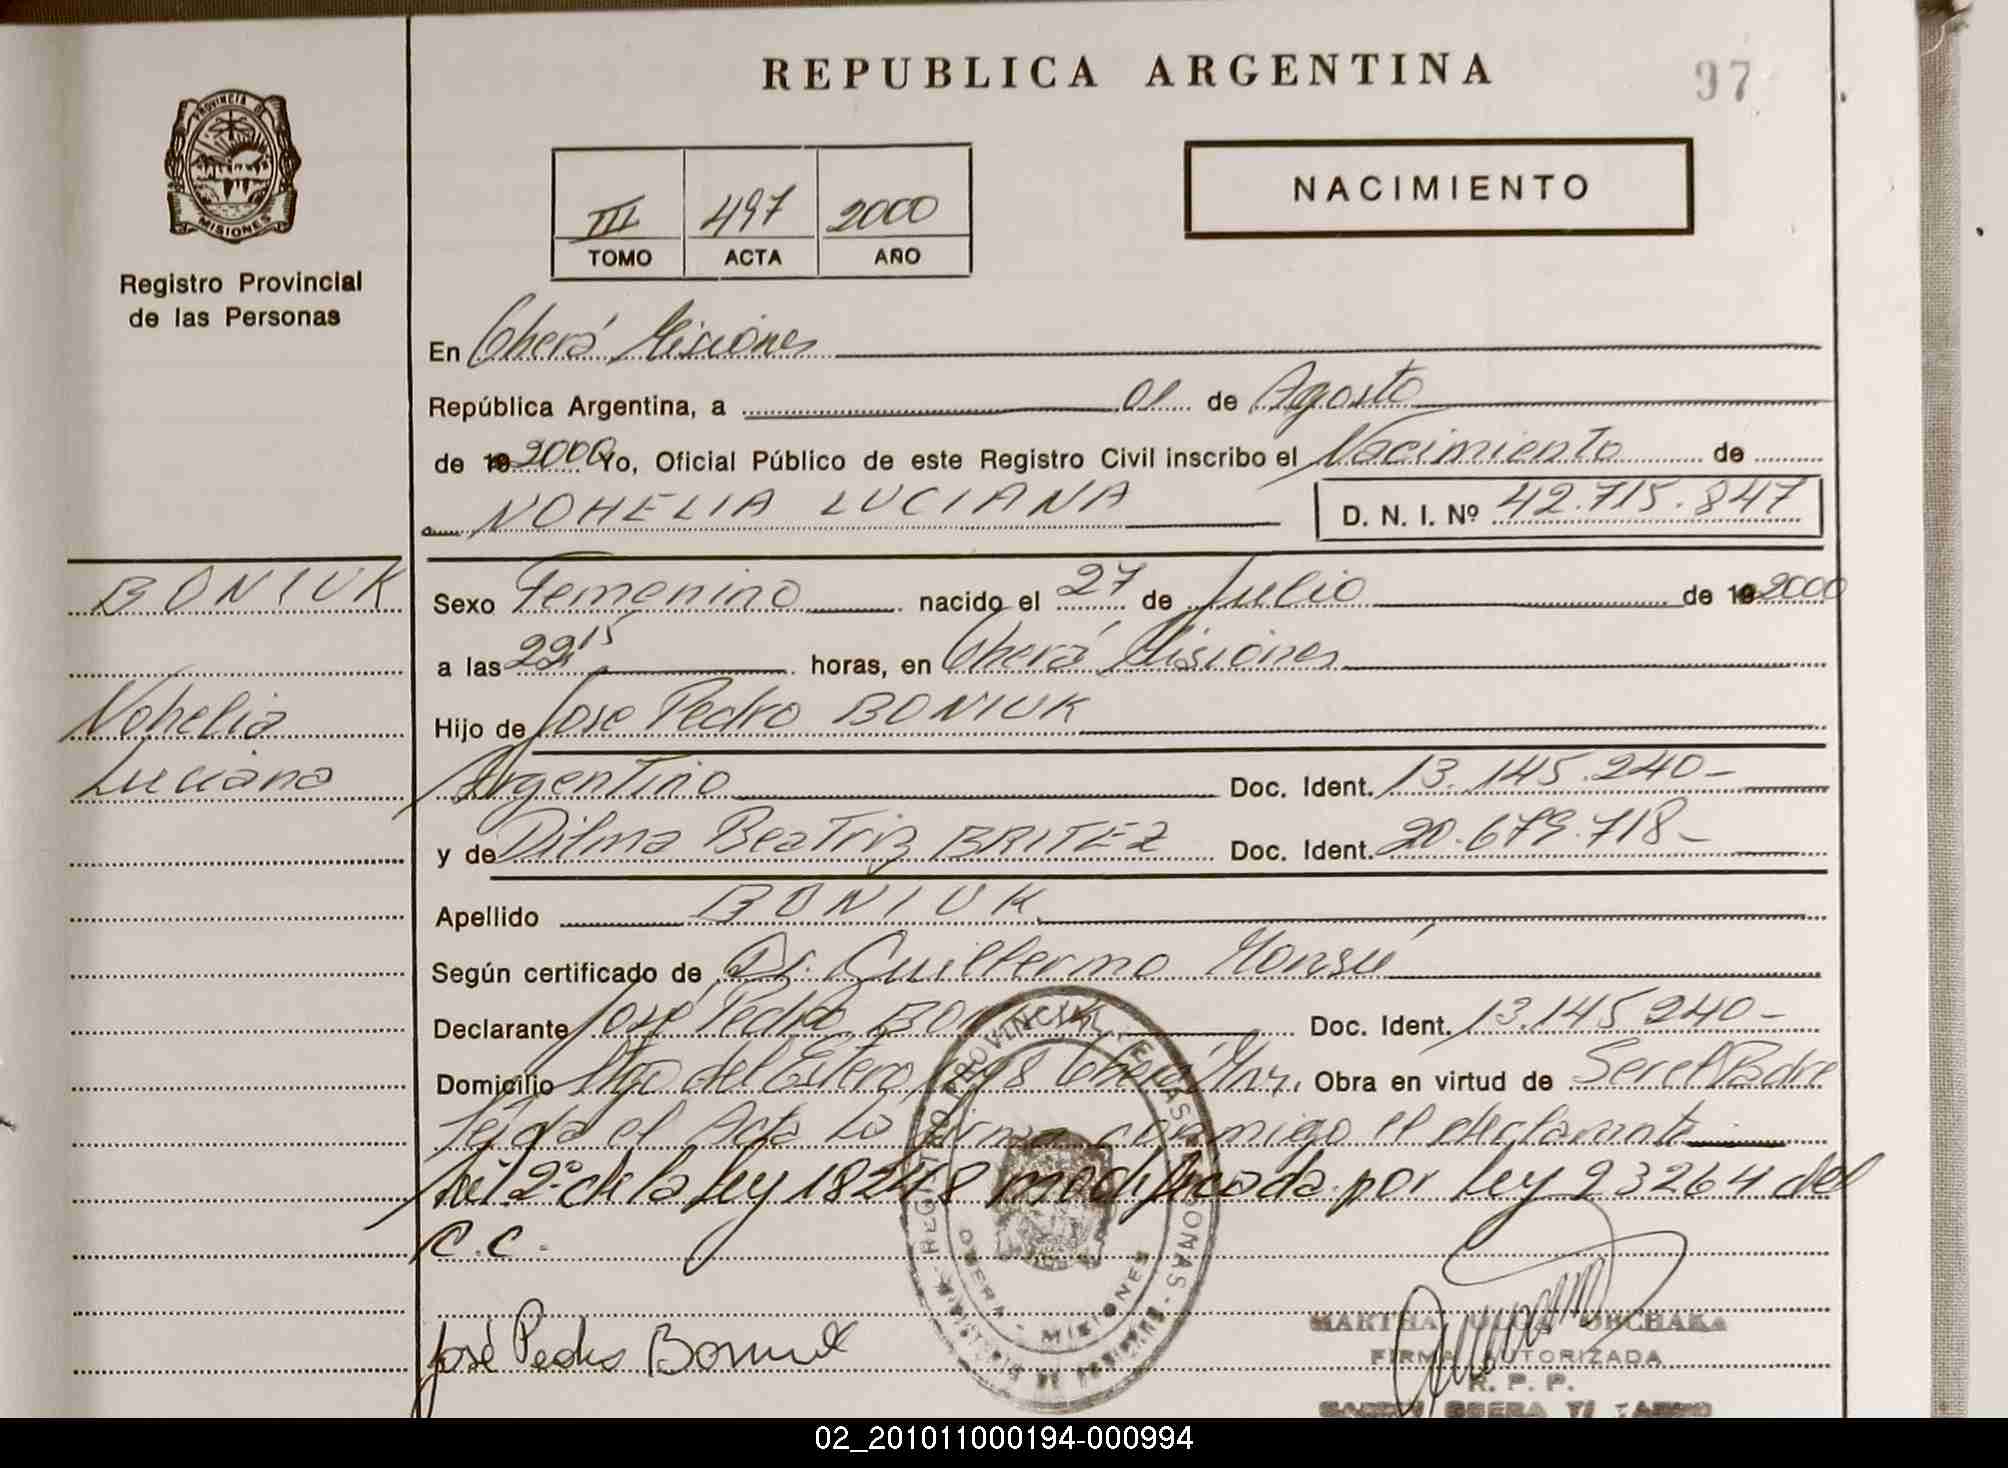 REPUBLICA ARGENTINA
97
PROVINCIA DE
MISIONES
Registro Provincial
de las Personas
III 497 2000
TOMO ACTA AÑO
NACIMIENTO
En Oberá Misiones
República Argentina, a 01 de Agosto
de 19 2000 Yo, Oficial Público de este Registro Civil inscribo el Nacimiento de
NOHELIA LUCIANA D. N. I. Nº 42.715.847
BONIUK
Nohelia
Luciana
Sexo Femenino nacido el 27 de Julio de 19 2000
a las 22,15 horas, en Oberá Misiones
Hijo de Jose Pedro BONIUK
Argentino Doc. Ident. 13.145.240-
y de Dilma Beatriz BRITEZ Doc. Ident. 20.679.718-
Apellido BONIUK
Según certificado de Dr. Guillermo
Declarante José Pedro BONIUK Doc. Ident. 13.145.240-
Domicilio Stgo del Estero Oberá Mnes. Obra en virtud de Ser el Padre
Leída el Acta la firma conmigo el declarante
2º de la ley 18248 modificada por ley 23264 del
C.C.
José Pedro Boniuk
REGISTRO PROVINCIAL DE LAS PERSONAS - MINISTERIO DE GOBIERNO
OBERA - MISIONES
MARTHA OBCHAKA
FIRMA AUTORIZADA
R. P. P.
02_201011000194-000994